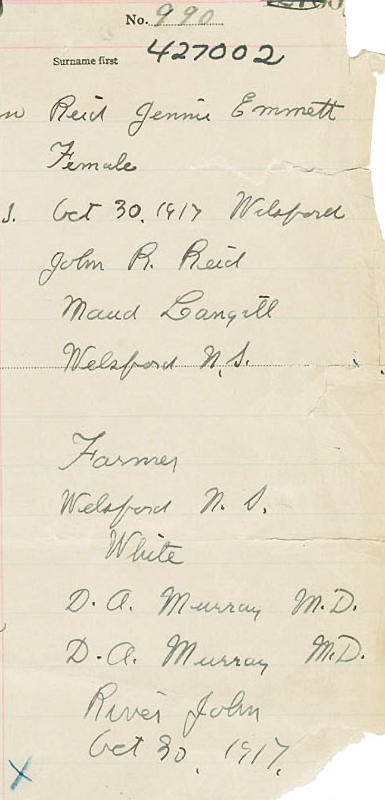 No. 990
427002
Surname first
Reid Jennie Emmett
Female
Oct 30, 1917 Welsford
John R. Reid
Maud Langill
Welsford N.S.
Farmer
Welsford N. S.
White
D. A. Murray M.D.
D. A. Murray M.D.
River John
Oct 30, 1917.
X